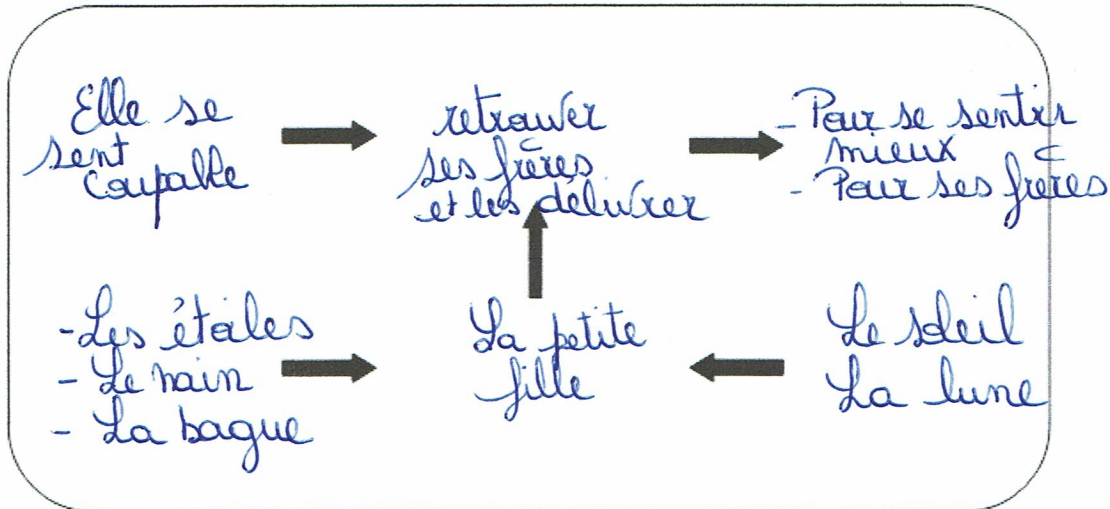 Elle se
sent
coupable
retrouver
ses frères
et les délivrer
- Pour se sentir
mieux
- Pour ses frères
- Les étoiles
- Le nain
- La bague
La petite
fille
Le soleil
La lune